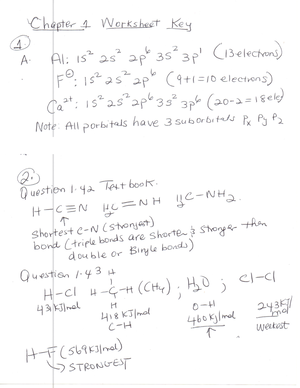 Chapter 1 Worksheet Key
1.
A. Al: 1s² 2s² 2p⁶ 3s² 3p¹ (13 electrons)
F⊖: 1s² 2s² 2p⁶ (9+1=10 electrons)
Ca²⁺: 1s² 2s² 2p⁶ 3s² 3p⁶ (20-2=18 ele)
Note: All p orbitals have 3 suborbitals Px Py Pz
2.
Question 1.42 Text book.
H-C≡N H₂C=NH H₃C-NH₂
Shortest C-N (strongest)
bond (triple bonds are shorter & stronger then
double or single bonds)
Question 1.43 H
H-Cl H-C-H (CH₄) ; H₂O ; Cl-Cl
431 kJ/mol H O-H 243 kJ/mol
418 kJ/mol 460 kJ/mol weakest
C-H
H-F (569 kJ/mol)
STRONGEST